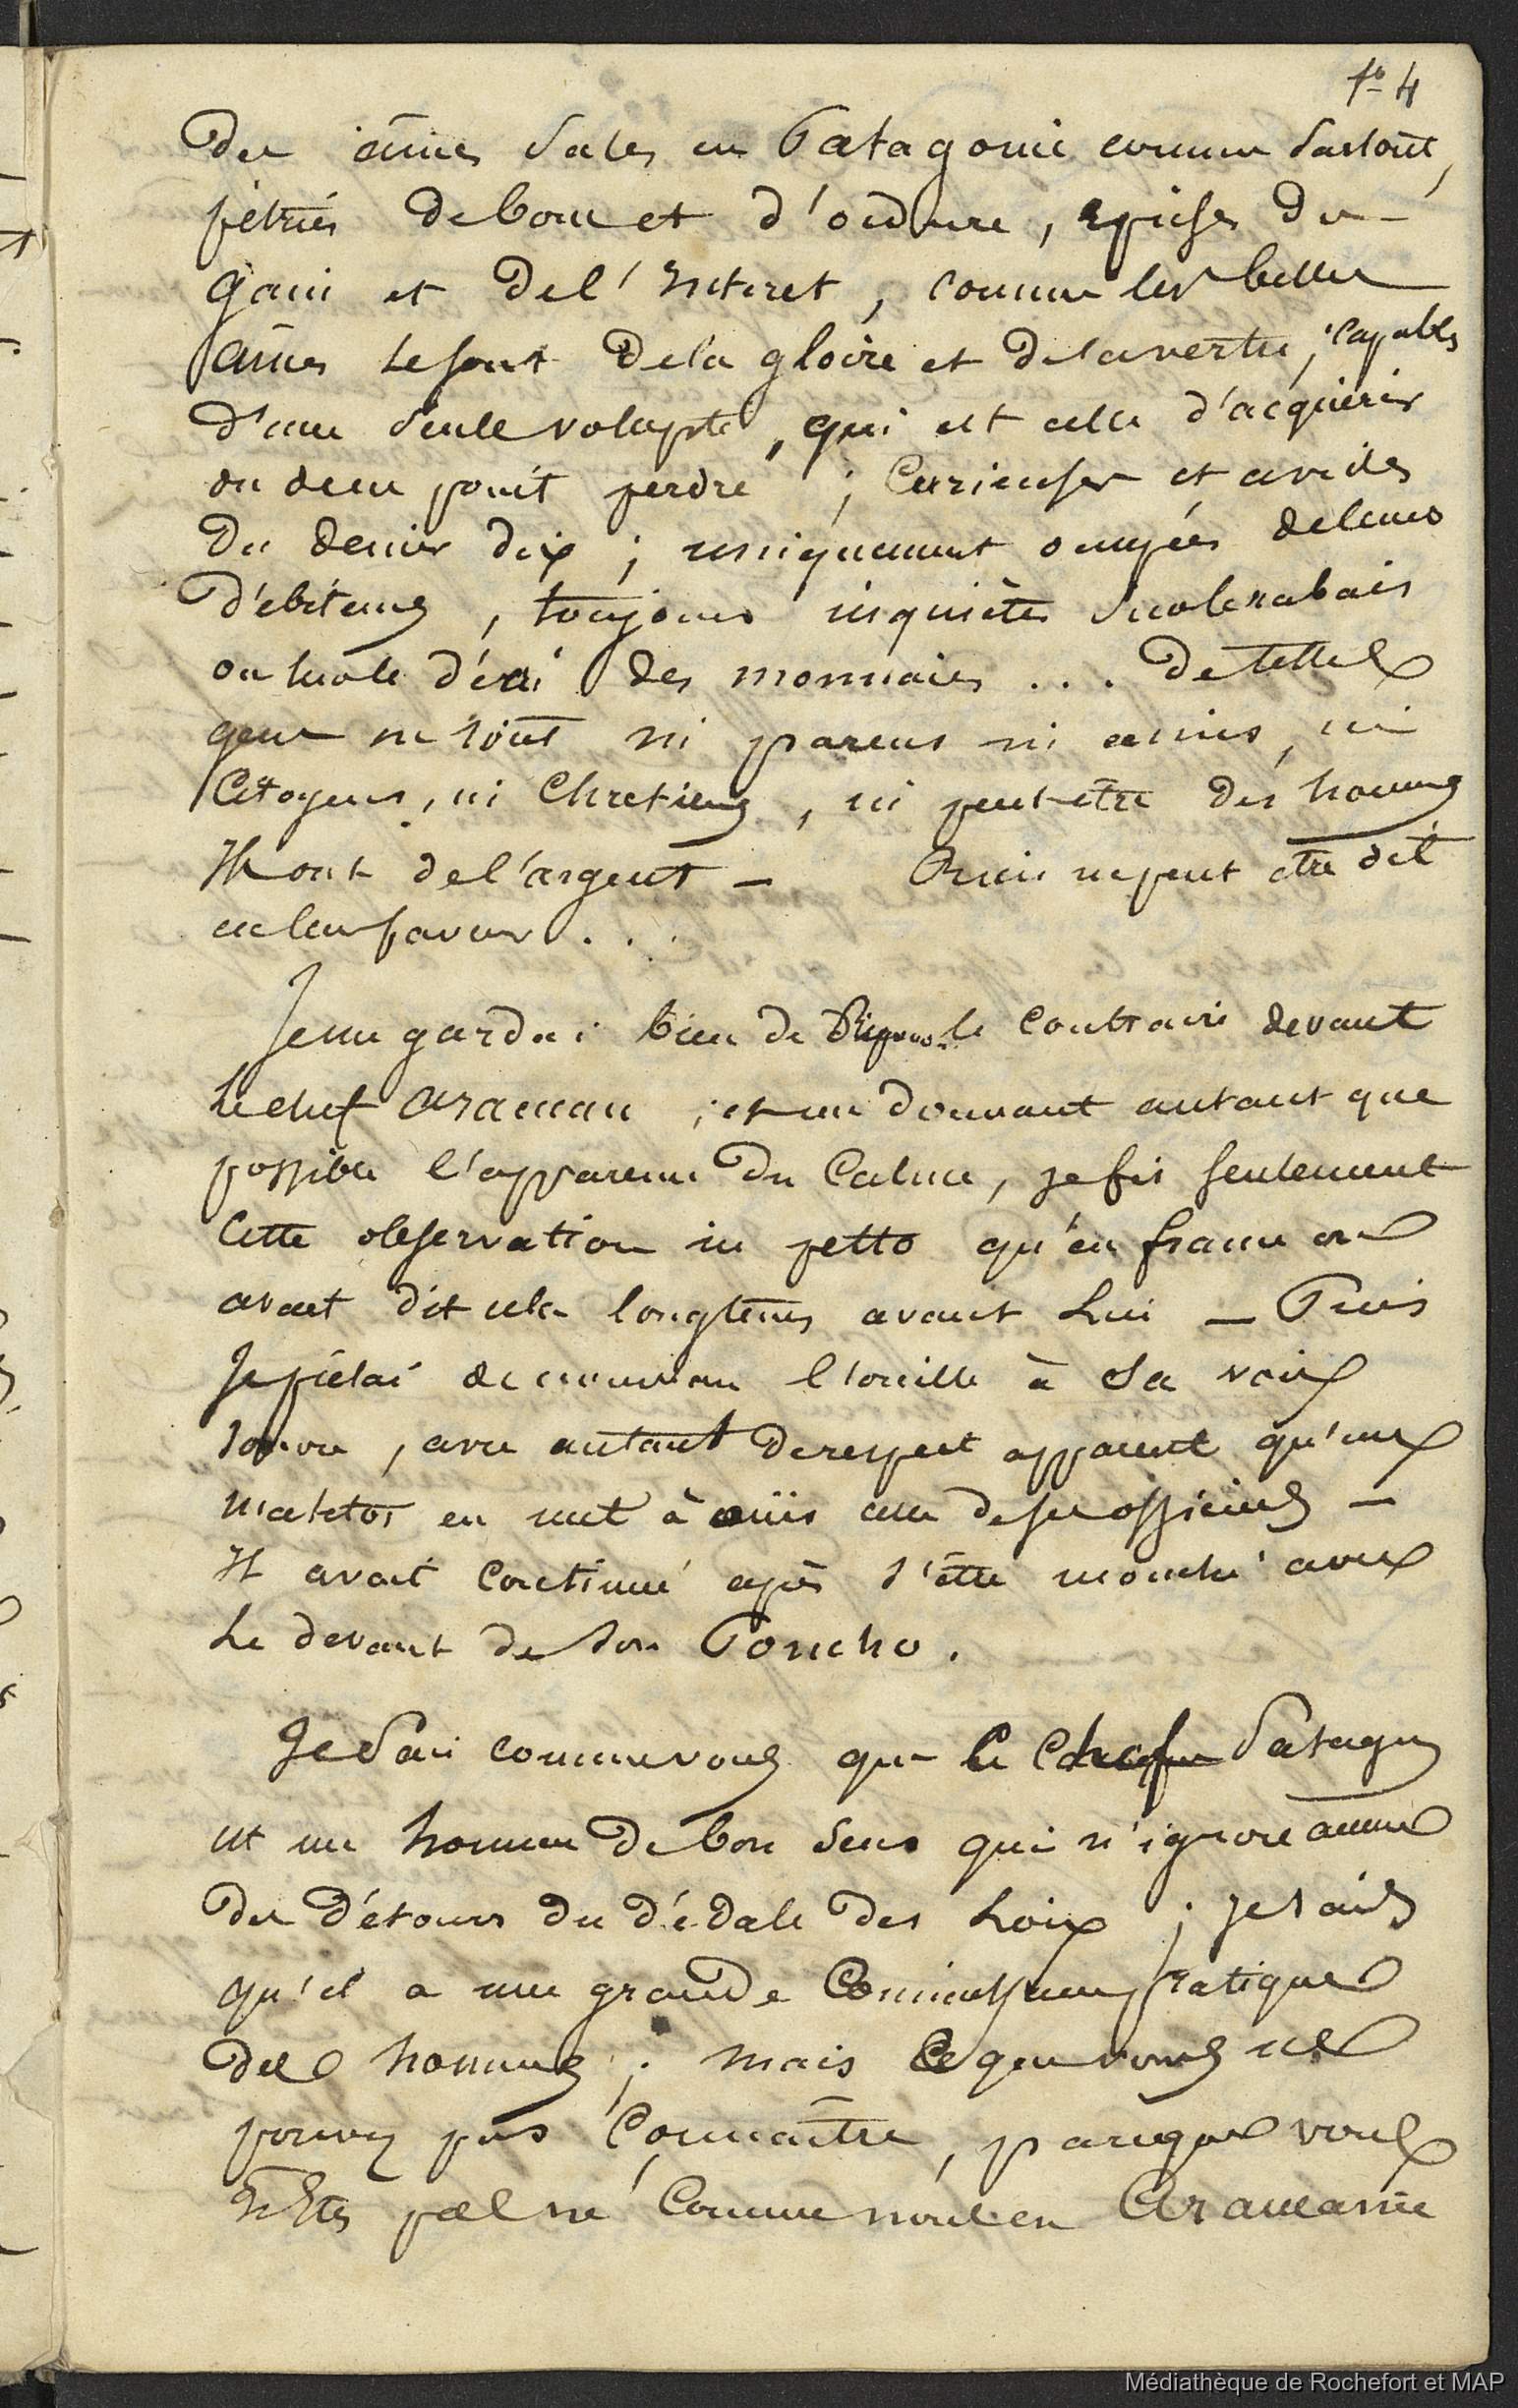 fo 4
Des âmes sales en Patagonie comme partout,
pétries de boue et d'ordure, éprises du
gain et de l'interet, comme les belles
âmes le sont de la gloire et de la vertu, capables
d'une seule volupté, qui est celle d'acquérir
ou de ne point perdre ; curieuses et avides
du denier dix ; uniquement occupées de leurs
débiteurs, toujours inquiètes sur le rabais
ou sur le décri des monnaies ... de telles
gens ne sont ni parens ni amis, ni
Citoyens, ni Chretiens, ni peut-être des hommes
Ils ont de l'argent — Rien ne peut être dit
en leur faveur ...
Je me gardai bien de le contraire devant
le chef araucan ; et me donnant autant que
possible l'apparence du calme, je fis seulement
cette observation in petto qu'en france on
avait dit cela longtems avant lui — Puis
Je prêtai de nouveau l'oreille à sa voix
sonore, avec autant de respect apparent qu'un
matelot en met à ouïr un de ses officiers —
Il avait continué après s'être mouché avec
le devant de son Poncho.
Je sais comme vous que le chef Patagon
est un homme de bon sens qui n'ignore aucun
des détours du dédale des Loix ; je sais
qu'il a une grande Connaissance pratique
des hommes ; mais ce que vous ne
pouvez pas Connaître, parceque vous
n'êtes pas né Comme nous en Araucanie
Médiathèque de Rochefort et MAP